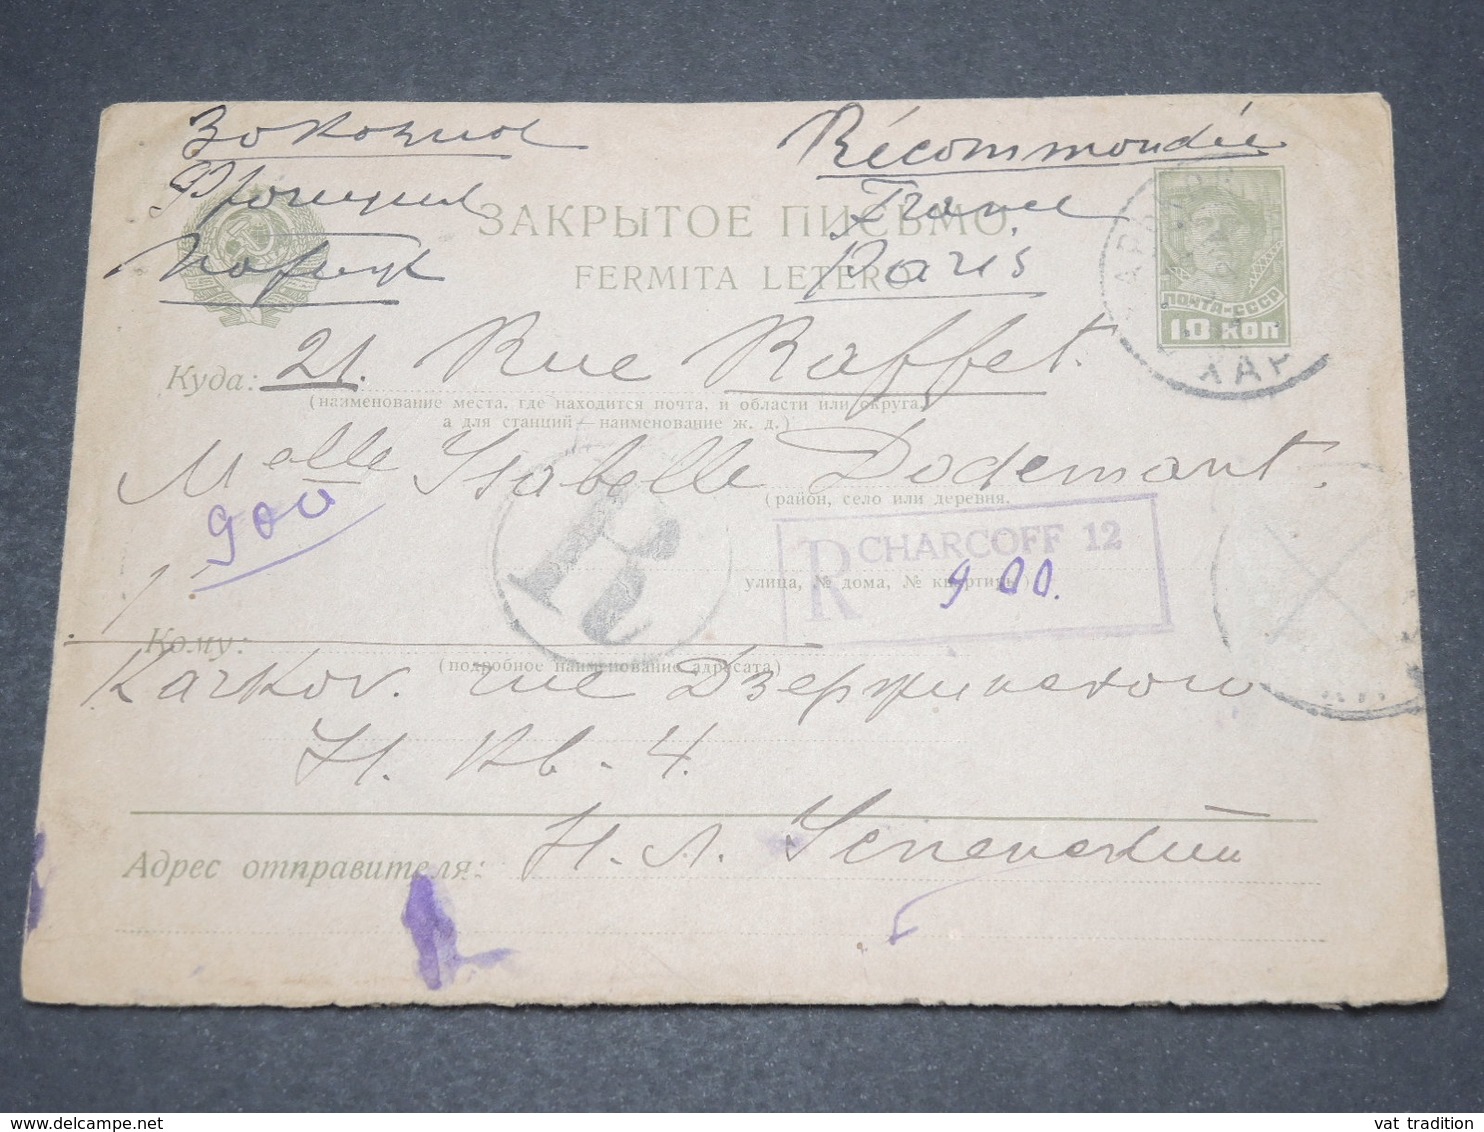 Заказное
Recommandée
Франция
France
ЗАКРЫТОЕ ПИСЬМО
Париж
Paris
FERMITA LETERO
ПОЧТА-СССР
10 КОП
ХАР
Куда: 21. Rue Raffet.
(наименование места, где находится почта, и области или округа,
а для станций — наименование ж. д.)
Melle Isabelle Dodemant.
(район, село или деревня,
900
R
R CHARCOFF 12
900.
улица, № дома, № квартиры)
Кому:
(подробное наименование адресата)
Karkov. rue Дзержинского
Кв. 4.
Адрес отправителя: Н. Л.
vat tradition